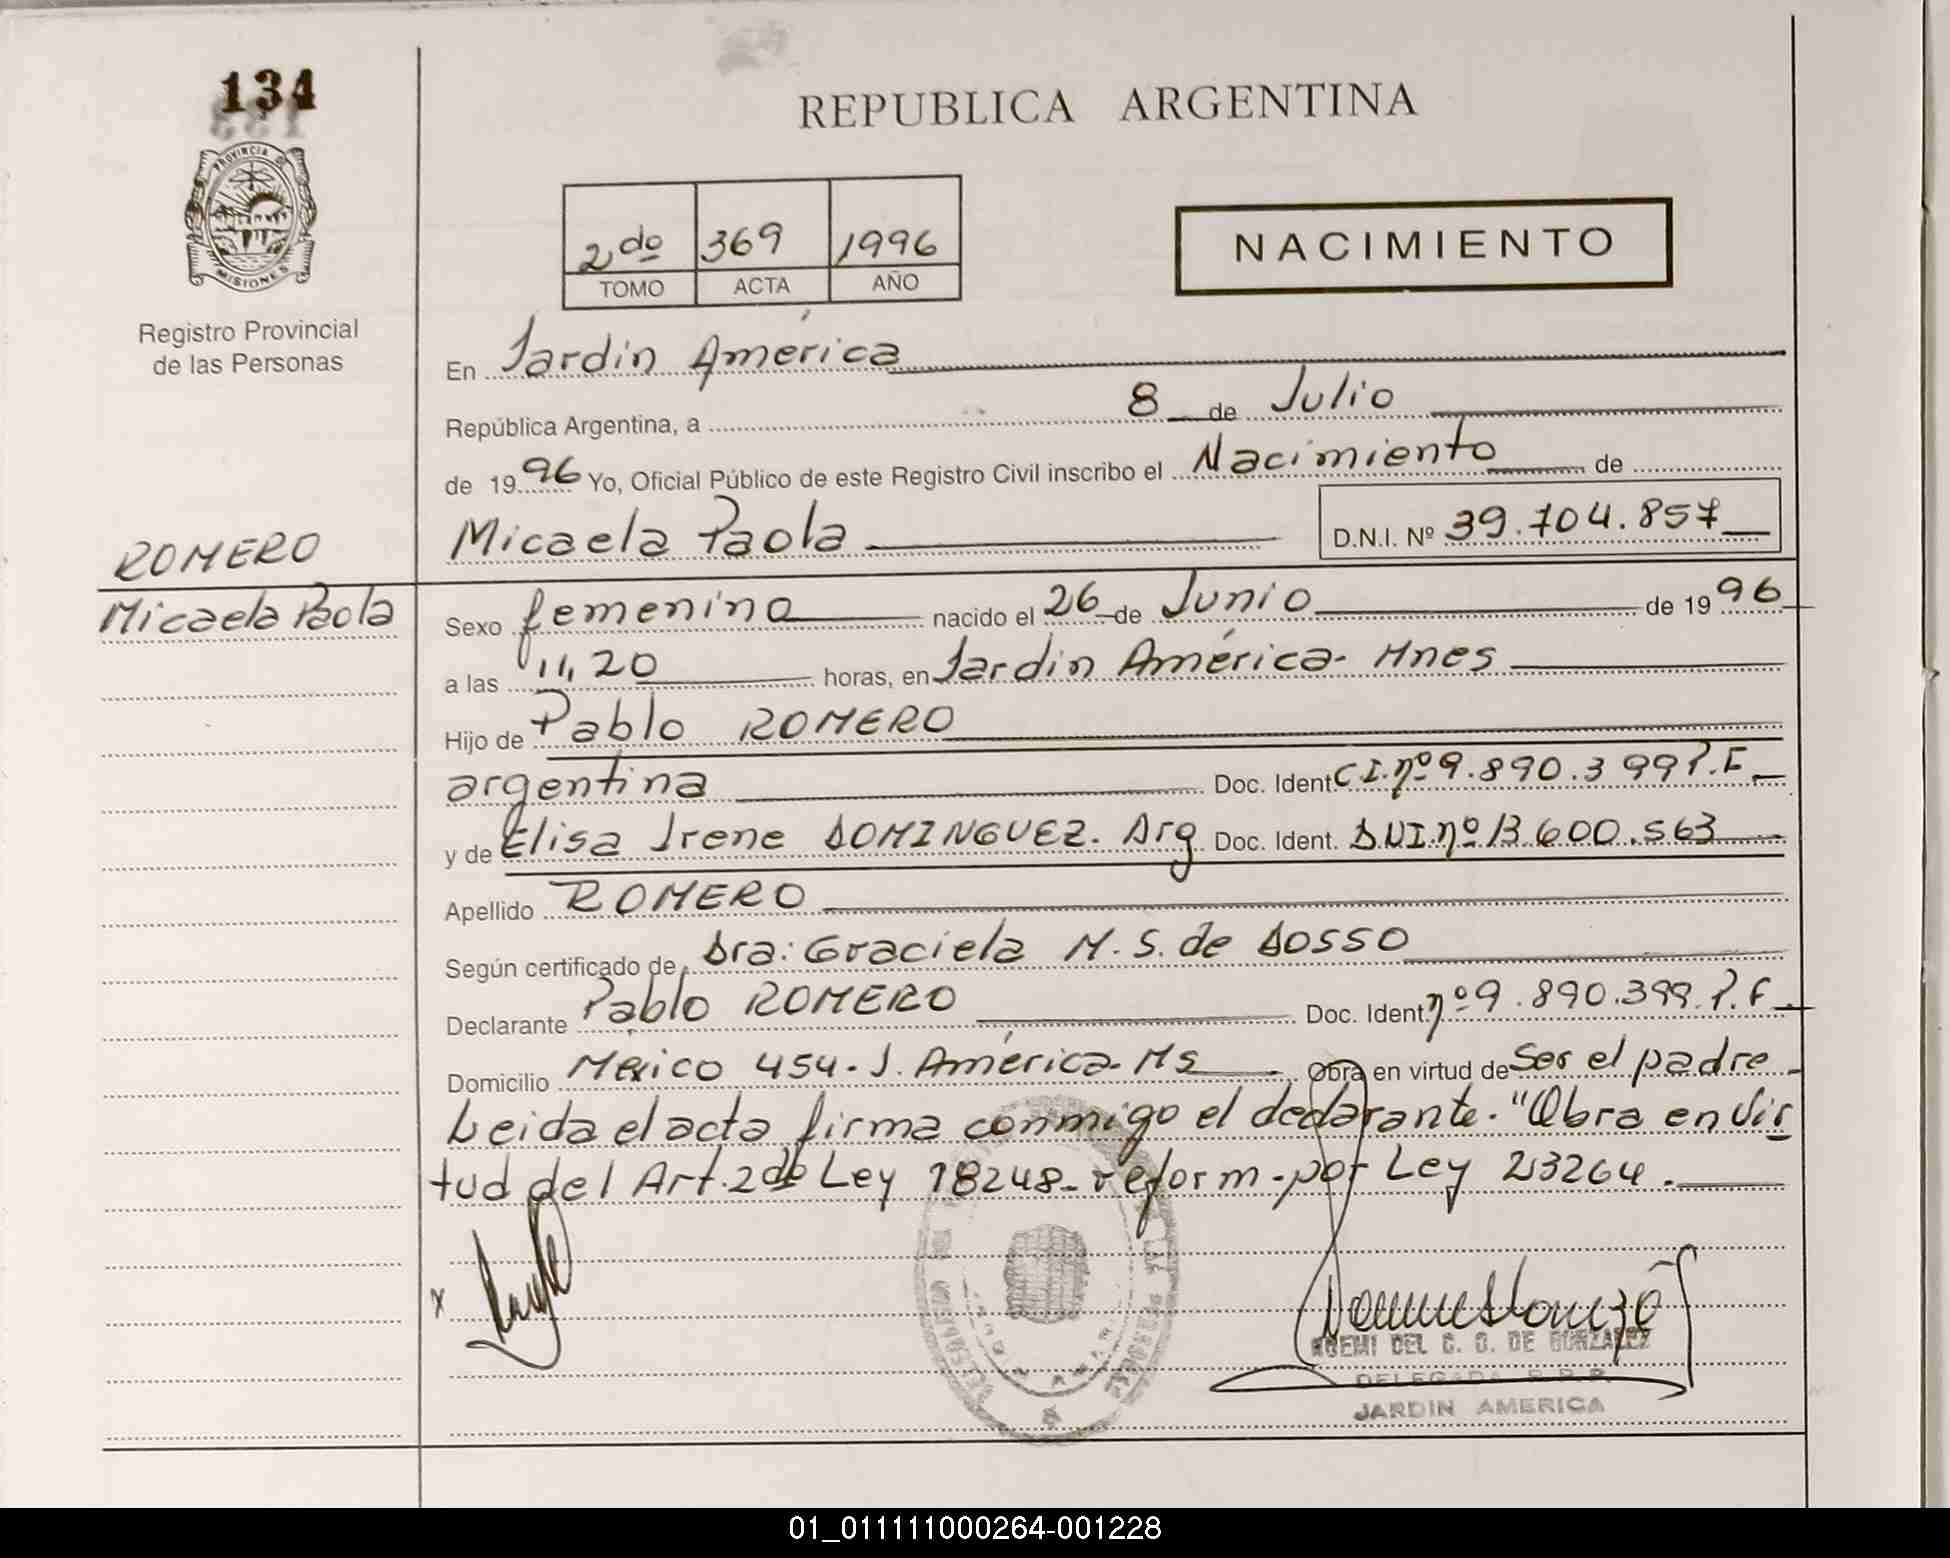 134
PROVINCIA DE
MISIONES
Registro Provincial
de las Personas
REPUBLICA ARGENTINA
2do 369 1996
TOMO ACTA AÑO
NACIMIENTO
En Jardin América
República Argentina, a 8 de Julio
de 1996 Yo, Oficial Público de este Registro Civil inscribo el Nacimiento de
Micaela Paola D.N.I. Nº 39.704.857
ROMERO
Micaela Paola
Sexo femenino nacido el 26 de Junio de 1996
a las 11,20 horas, en Jardin América- Mnes
Hijo de Pablo ROMERO
argentina Doc. Ident C.I. nº 9.890.399 P.F.
y de Elisa Irene DOMINGUEZ. Arg Doc. Ident. DNI. nº 13.600.563
Apellido ROMERO
Según certificado de Dra: Graciela M. S. de DOSSO
Declarante Pablo ROMERO Doc. Ident. nº 9.890.399. P.F.
Domicilio Mexico 454. J. América- Ms Obra en virtud de Ser el padre
Leida el acta firma conmigo el declarante. "Obra en vir
tud del Art. 2do Ley 18248- reform. por Ley 23264.
x
NOEMI DEL C. O. DE GONZALEZ
DELEGADA R.P.P.
JARDIN AMERICA
01_011111000264-001228